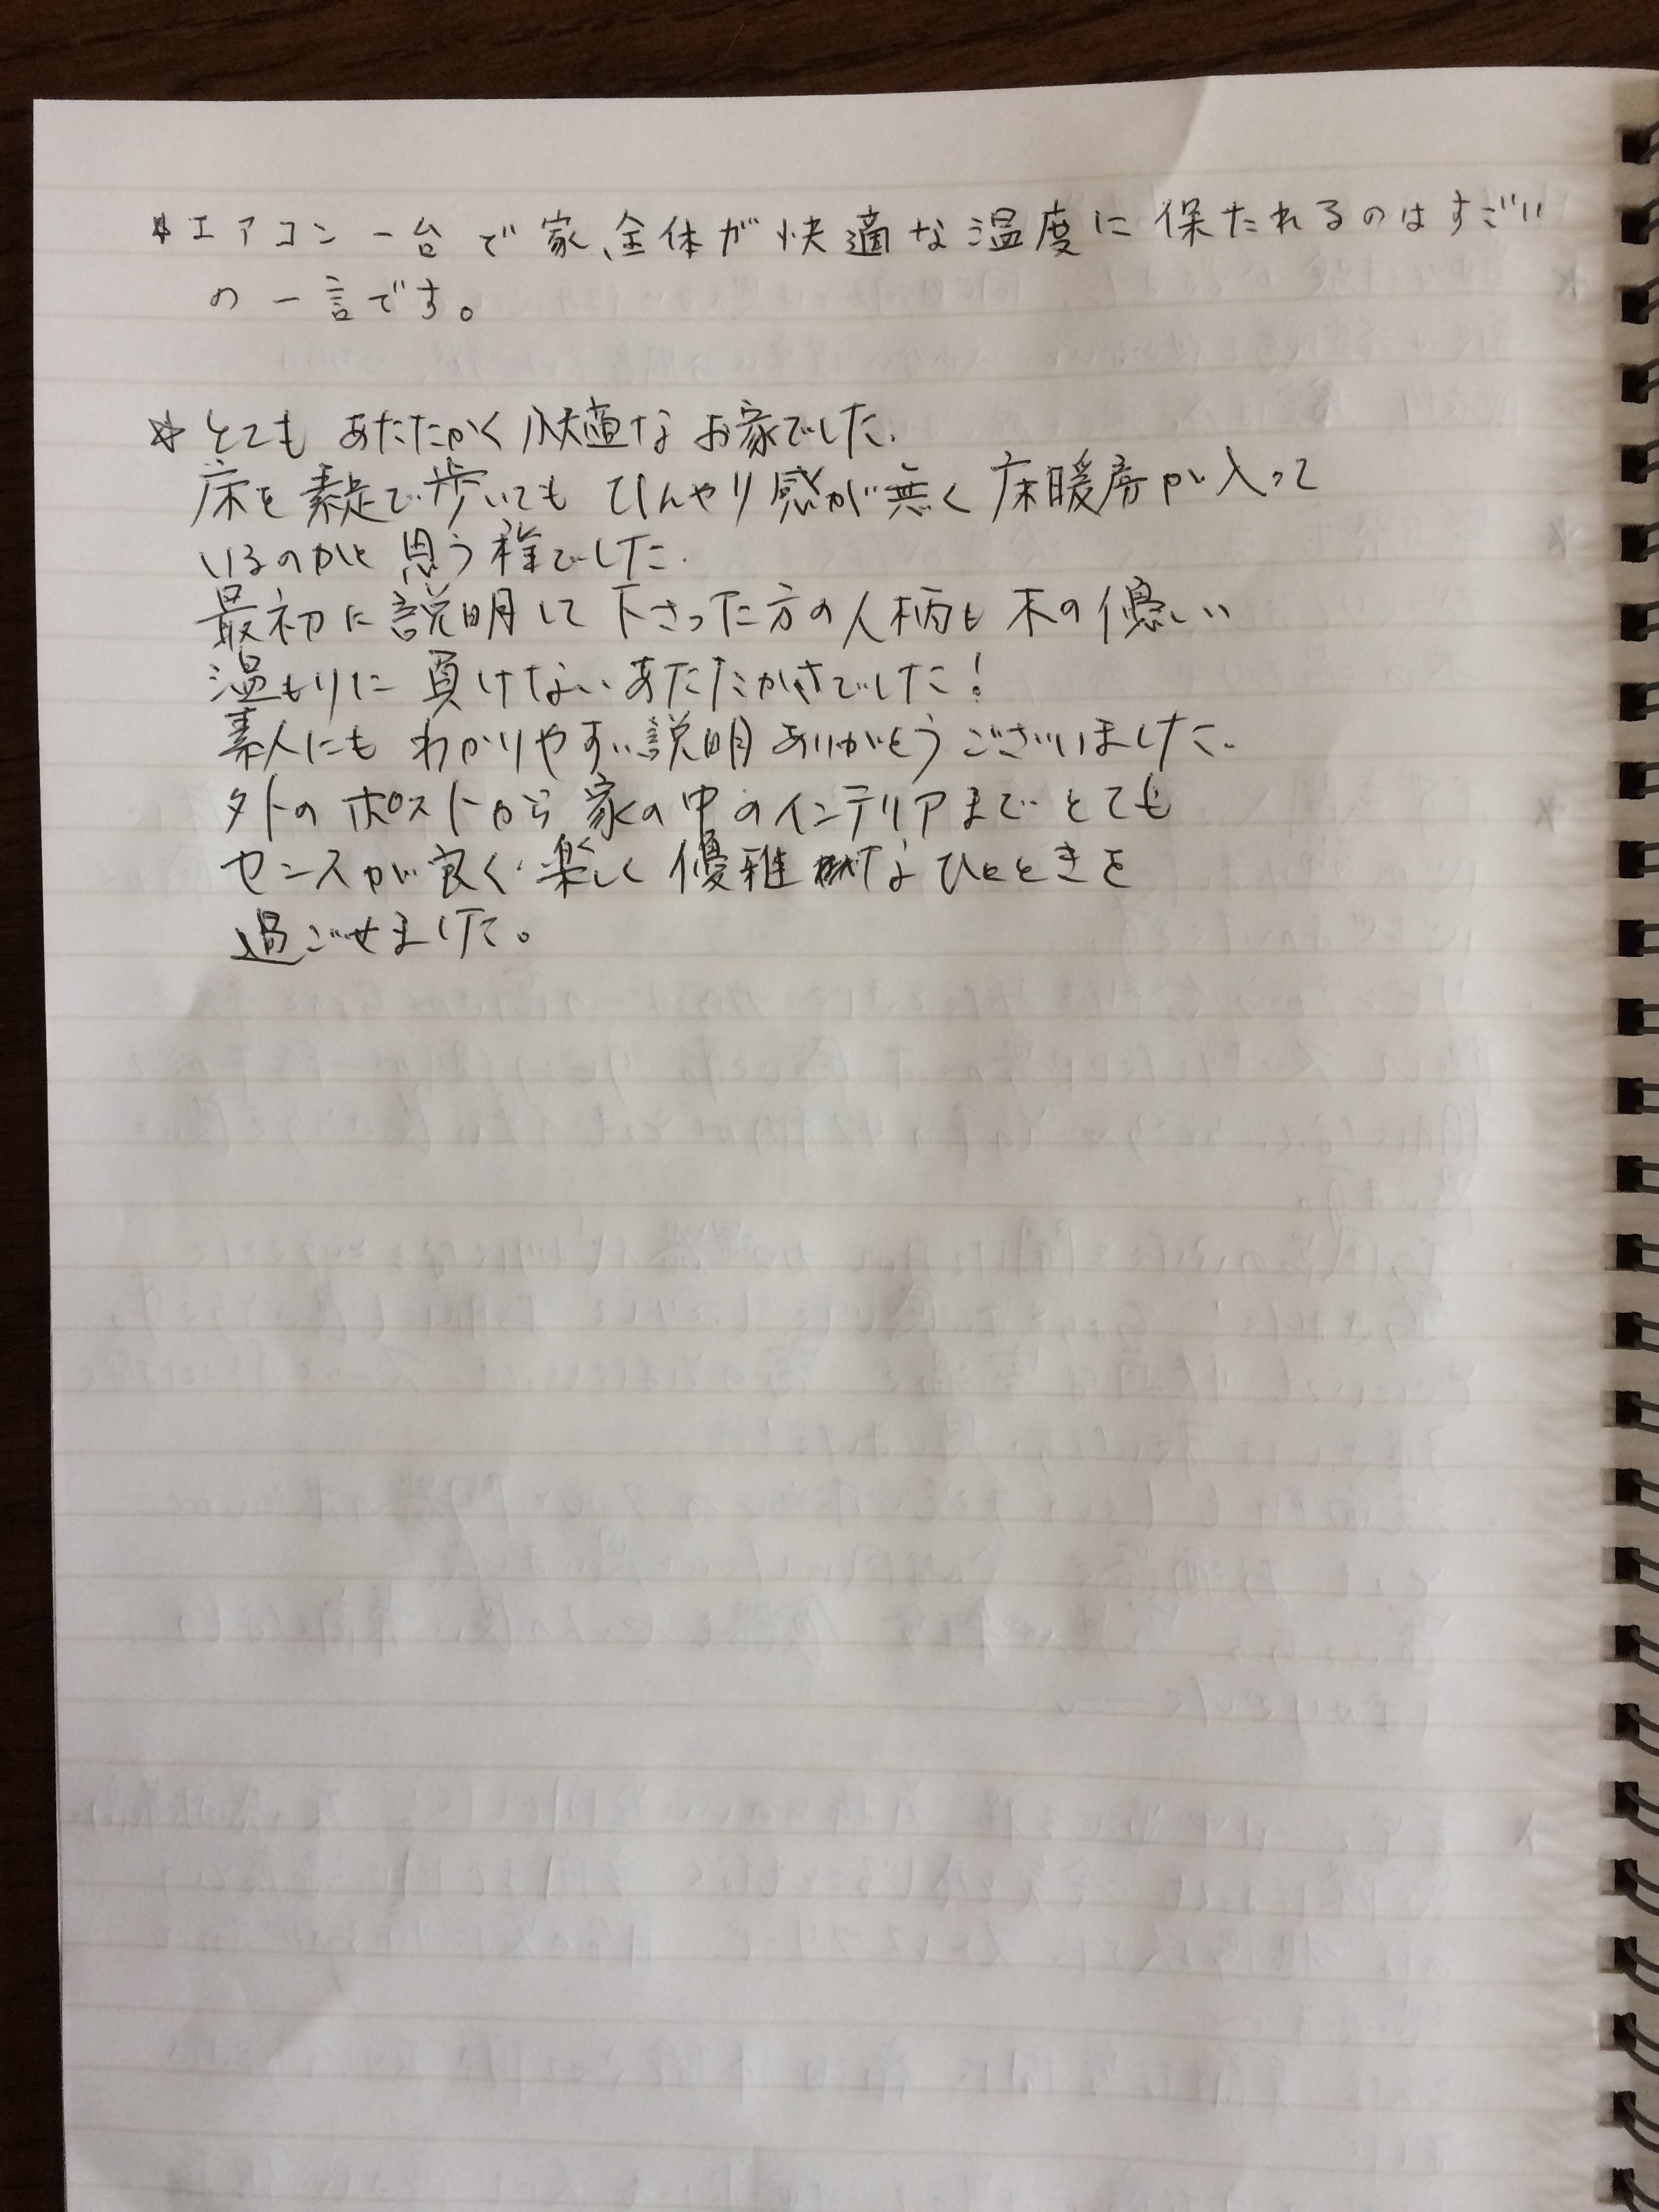 ☆エアコン一台で家全体が快適な温度に保たれるのはすごい
の一言です。
☆とても あたたかく 快適な お家でした.
床を素足で歩いても ひんやり感が無く 床暖房が入って
いるのかと思う程でした.
最初に説明して下さった方の人柄も 木の優しい
温もりに 負けない あたたかさでした!
素人にも わかりやすい説明 ありがとうございました.
外の ポストから 家の中のインテリアまで とても
センスが良く 楽しく 優雅なひとときを
過ごせました。